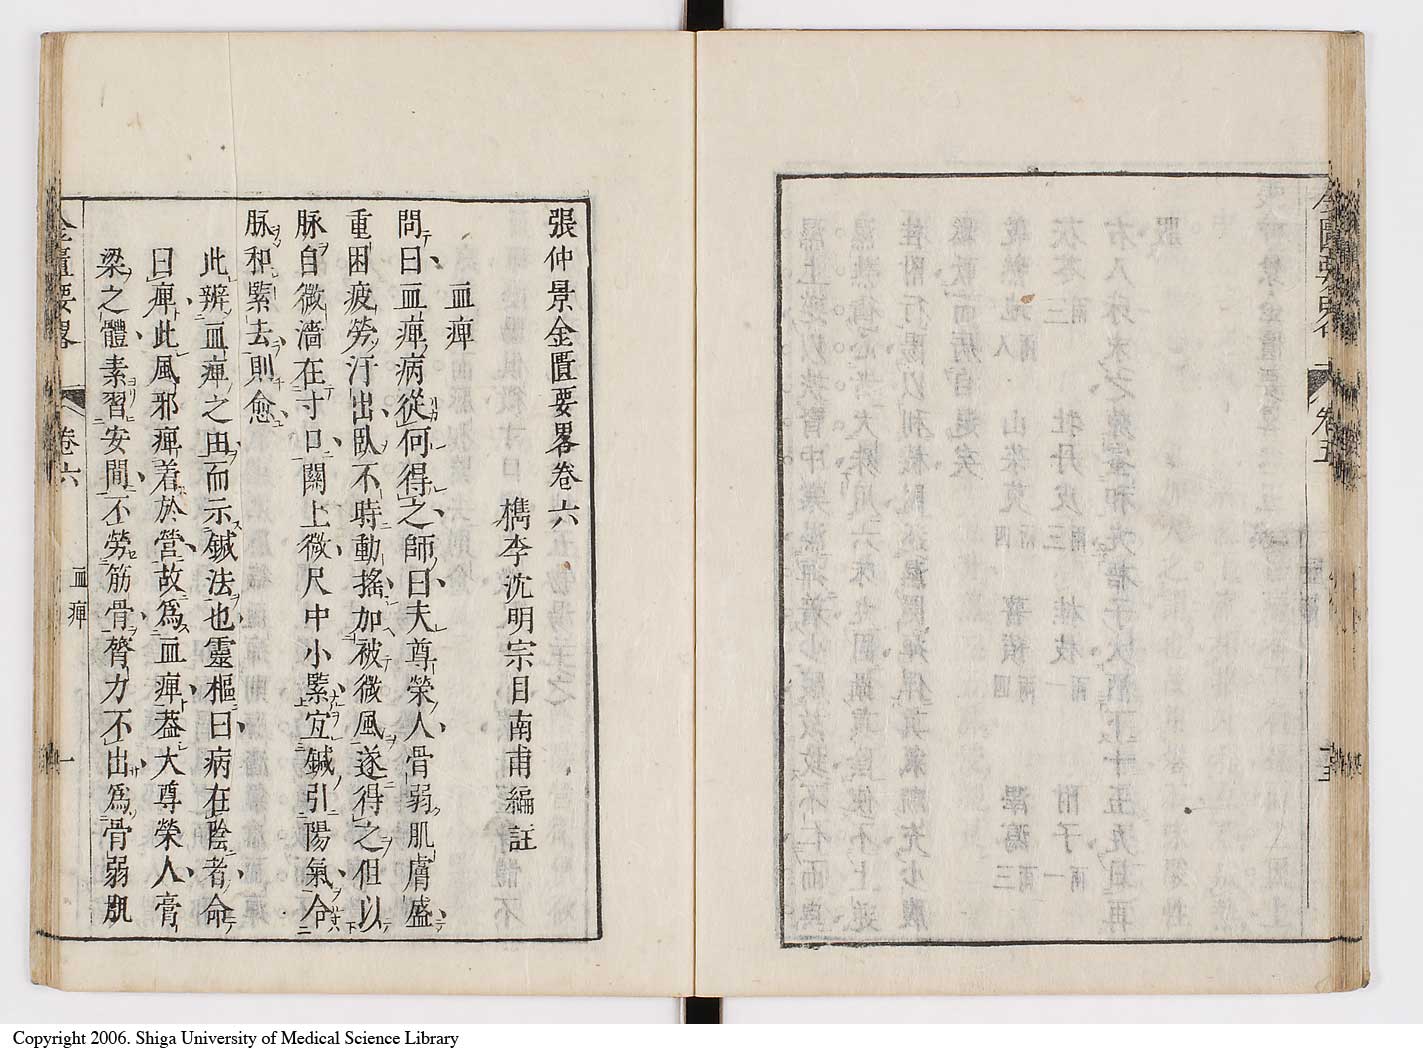 張仲景金匱要畧卷六
檇李沈明宗目南甫編註
血痺
問曰血痺病從何得之師曰夫尊榮人骨弱肌膚盛
重困疲勞汗出臥不時動搖加被微風遂得之但以
脉自微濇在寸口關上微尺中小緊宜鍼引陽氣令
脉和緊去則愈
此辨血痺之由而示鍼法也靈樞曰病在陰者命
曰痺此風邪痺着於營故爲血痺葢大尊榮人膏
梁之體素習安閒不勞筋骨膂力不出爲骨弱肌
金匱要畧
卷六
血痺
一
金匱要畧
卷五
Copyright 2006. Shiga University of Medical Science Library